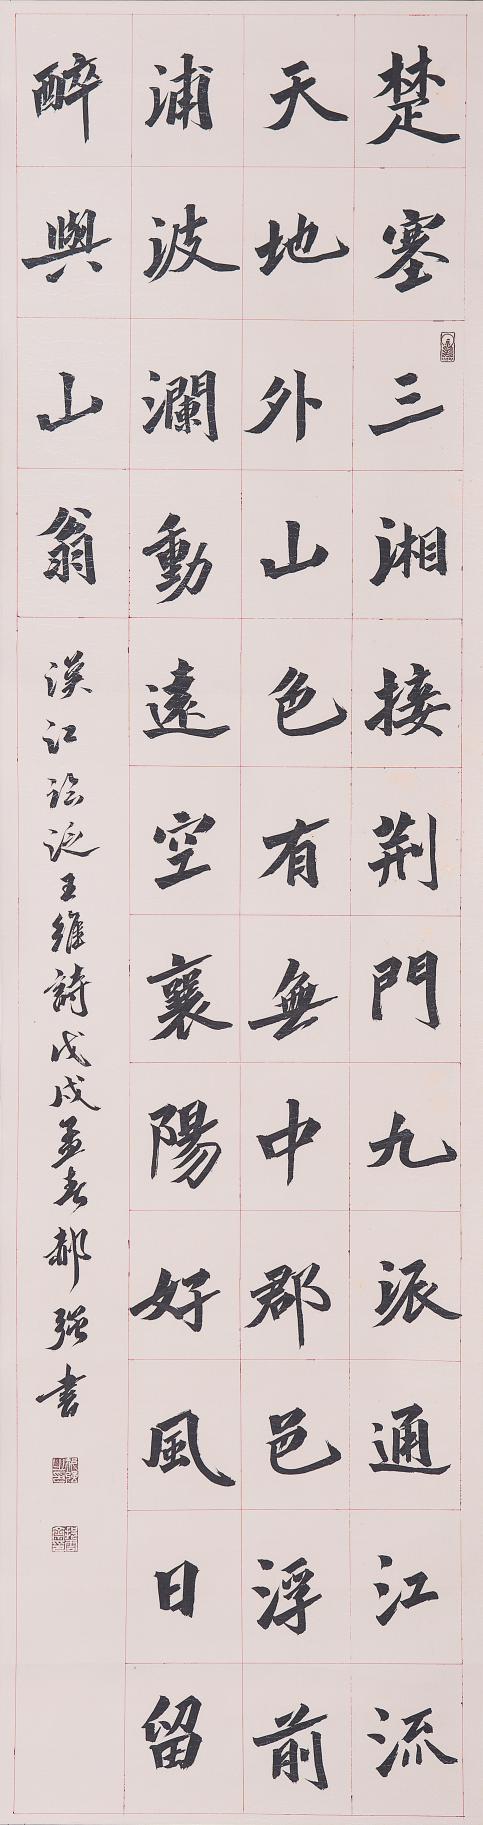 楚塞三湘接荆門九派通江流
天地外山色有無中郡邑浮前
浦波瀾動遠空襄陽好風日留
醉與山翁
漢江臨泛王維詩戊戌孟春郝強書